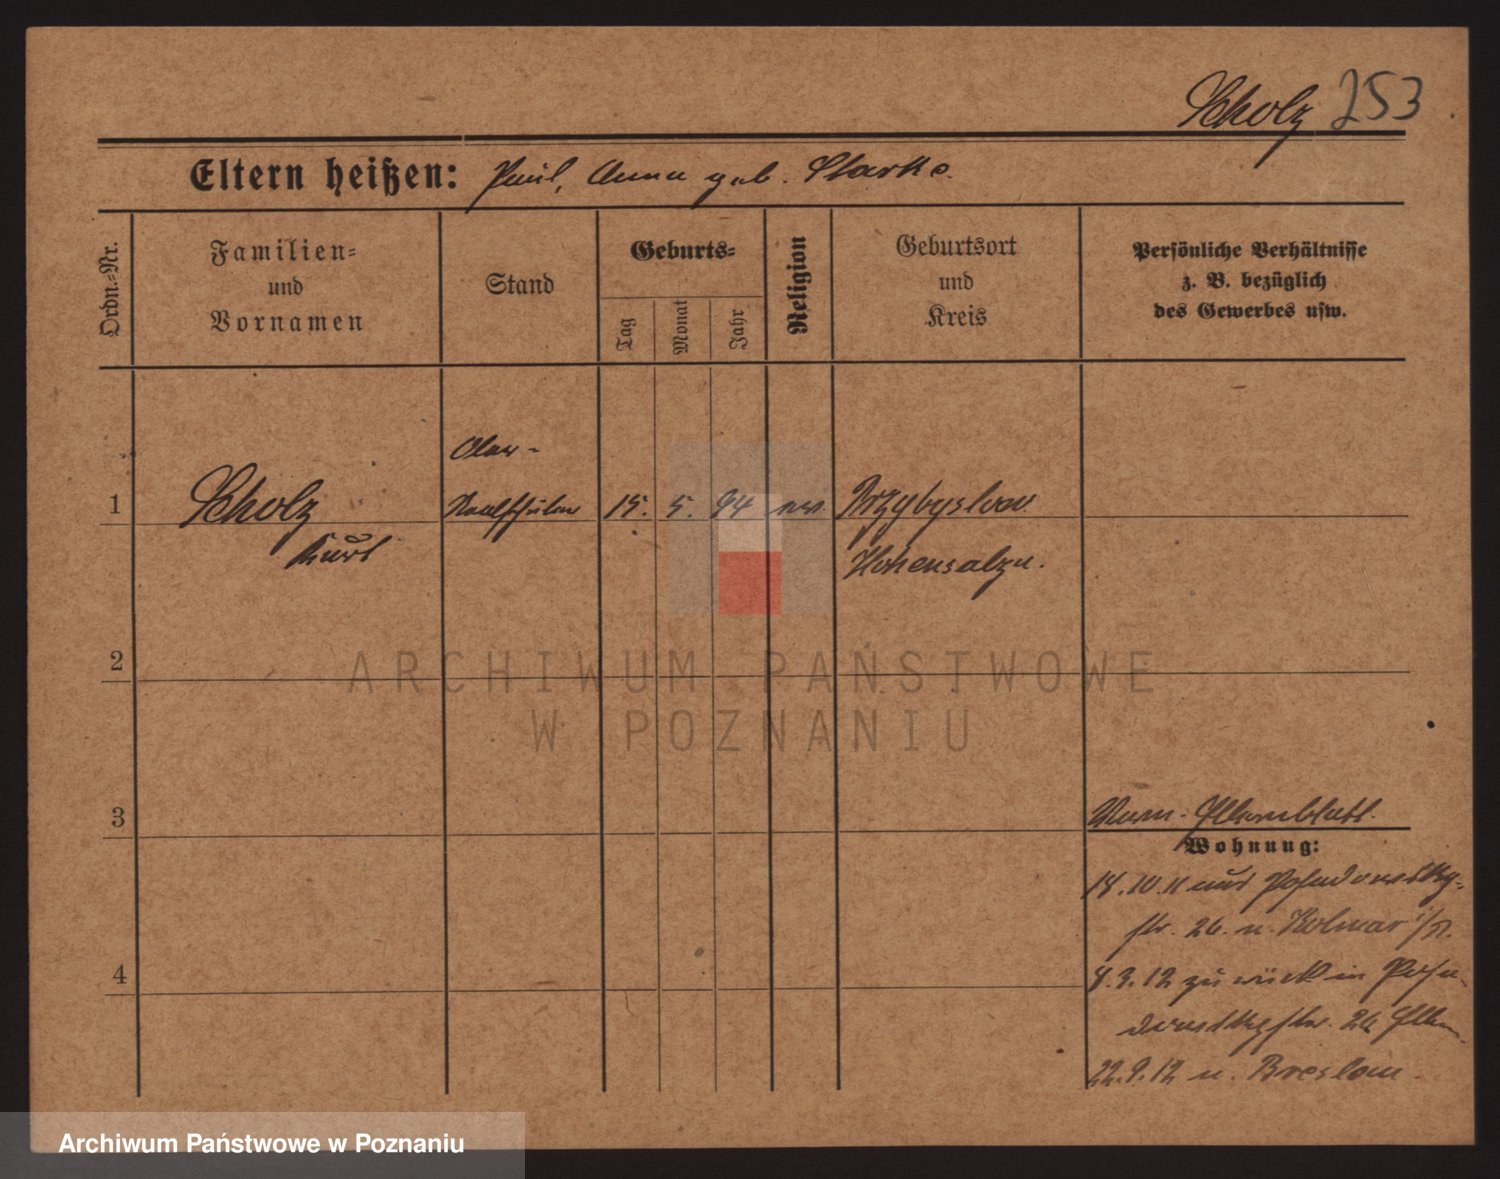 Scholz 253
Eltern heißen: Paul, Anna geb. Starke.
Ordn.-Nr.
Familien-
und
Vornamen
Stand
Geburts-
Tag
Monat
Jahr
Religion
Geburtsort
und
Kreis
Persönliche Verhältnisse
z. B. bezüglich
des Gewerbes usw.
Ober-
1 Scholz Realschüler 15. 5. 94 ev. Przybyslaw
Kurt Hohensalza.
2
ARCHIWUM PAŃSTWOWE
W POZNANIU
3
Elternblatt.
Wohnung:
18.10.11 aus Posadowsky-
str. 26. n. Kolmar i/P.
8.3.12 zurück in Posa-
dowskystr. 26 Eltern
4
22.9.12 n. Breslau.
Archiwum Państwowe w Poznaniu